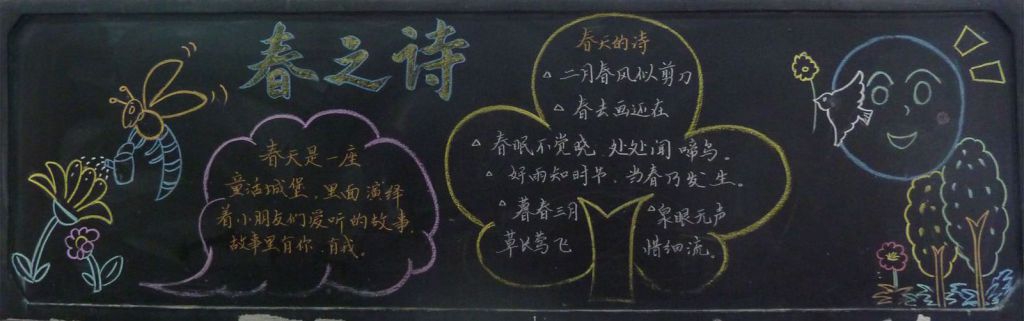 春之诗
春天是一座
童话城堡，里面演绎
着小朋友们爱听的故事，
故事里有你，有我。
春天的诗
△二月春风似剪刀
△春去画还在
△春眠不觉晓，处处闻啼鸟。
△好雨知时节，当春乃发生。
△暮春三月
草长莺飞
△泉眼无声
惜细流。